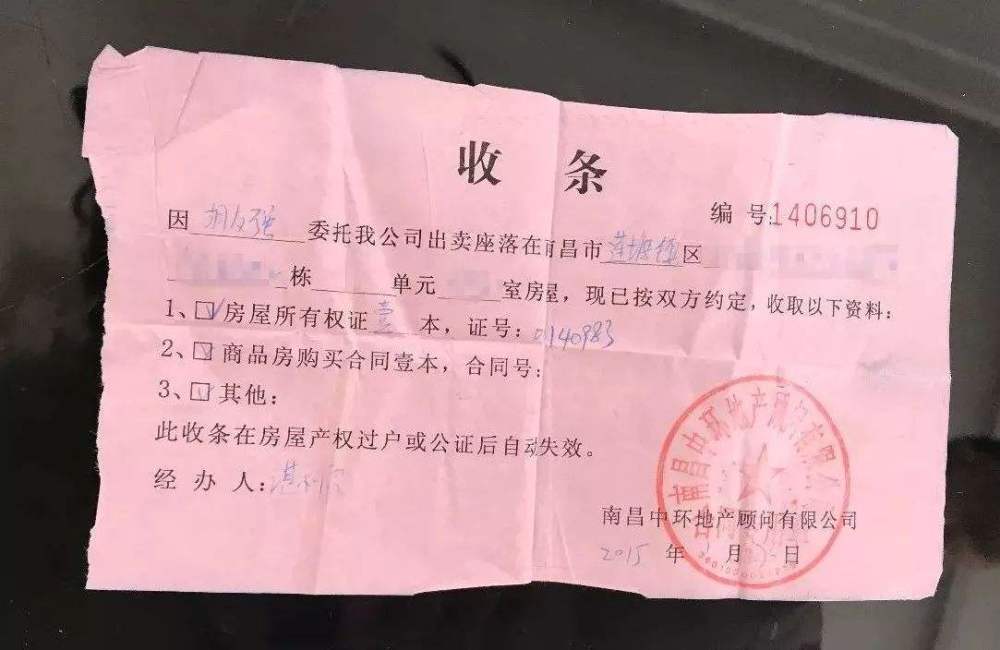 收条
编号:1406910
因 胡友强 委托我公司出卖座落在南昌市莲塘镇区
栋 单元 室房屋，现已按双方约定，收取以下资料：
1、☑房屋所有权证壹本，证号：0140983
2、☑商品房购买合同壹本，合同号：
3、☑其他：
此收条在房屋产权过户或公证后自动失效。
经办人：
南昌中环地产顾问有限公司
2015年 月 日
南昌中环地产顾问有限公司